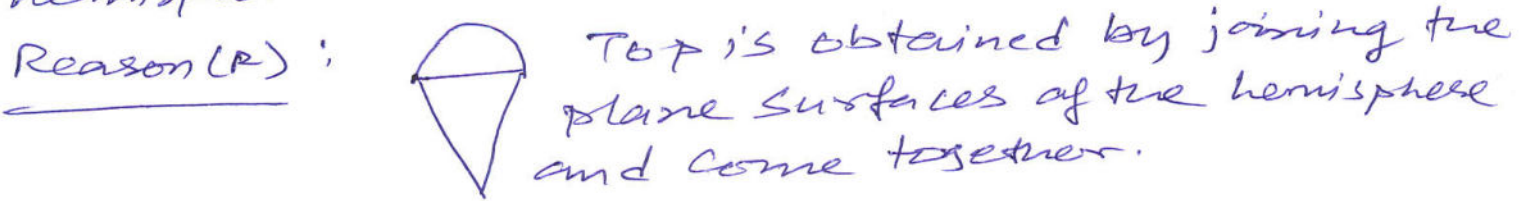 Reason (R) : Top is obtained by joining the
plane surfaces of the hemisphere
and cone together.